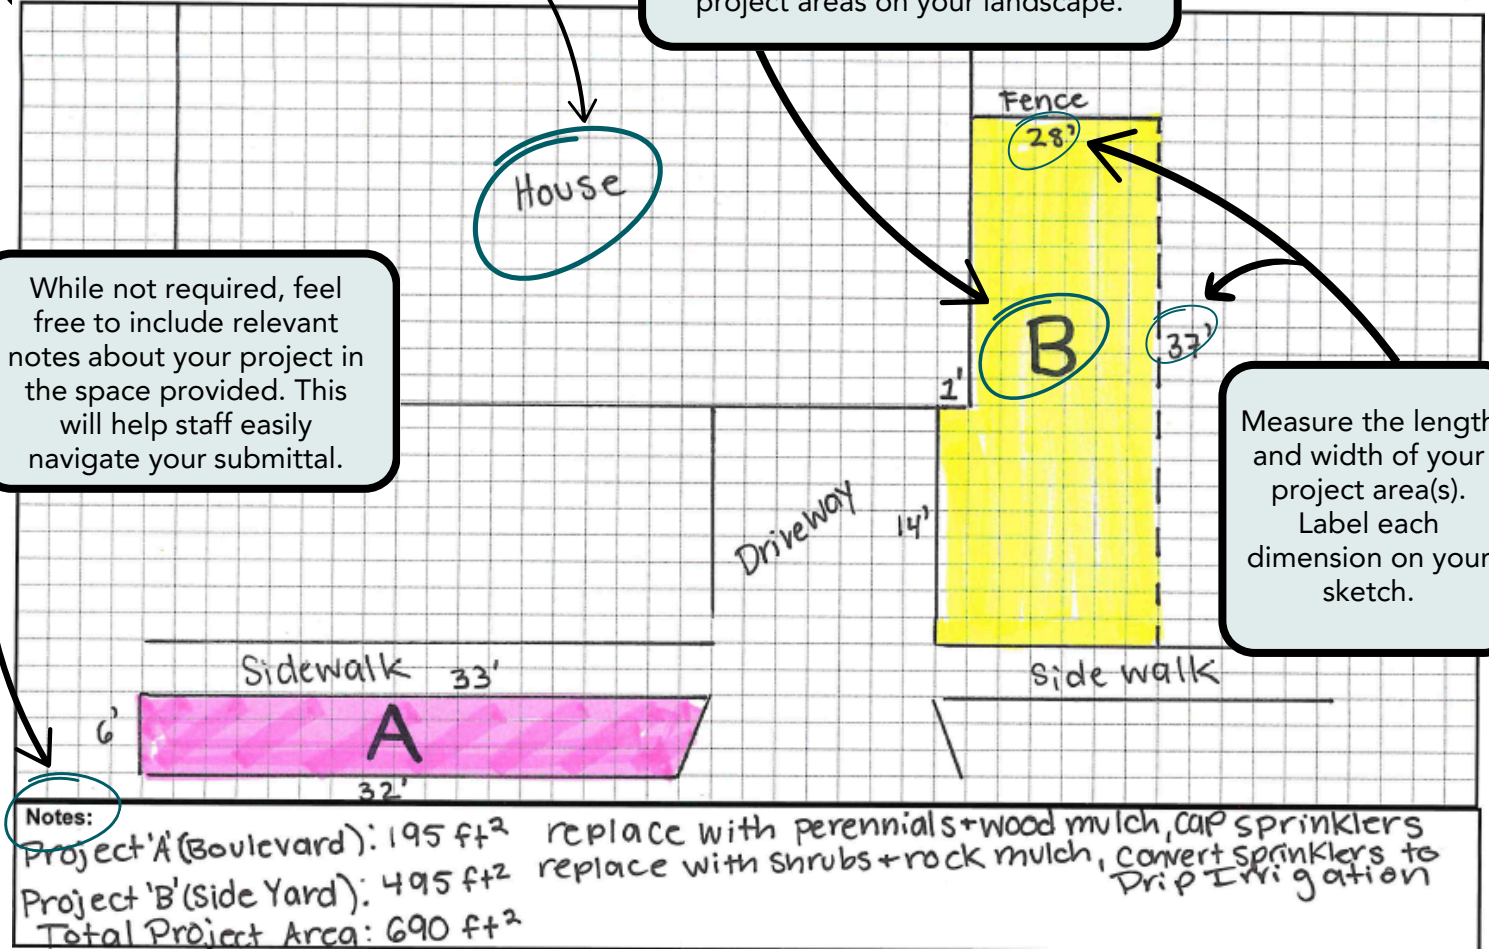 project areas on your landscape.
Fence
28'
House
While not required, feel
free to include relevant
notes about your project in
the space provided. This
will help staff easily
navigate your submittal.
B
37'
2'
Measure the length
and width of your
project area(s).
Label each
dimension on your
sketch.
Driveway
14'
Sidewalk 33'
Side walk
6'
A
32'
Notes:
Project 'A' (Boulevard): 195 ft² replace with perennials + wood mulch, cap sprinklers
Project 'B' (Side Yard): 495 ft² replace with shrubs + rock mulch, convert sprinklers to
Drip Irrigation
Total Project Area: 690 ft²